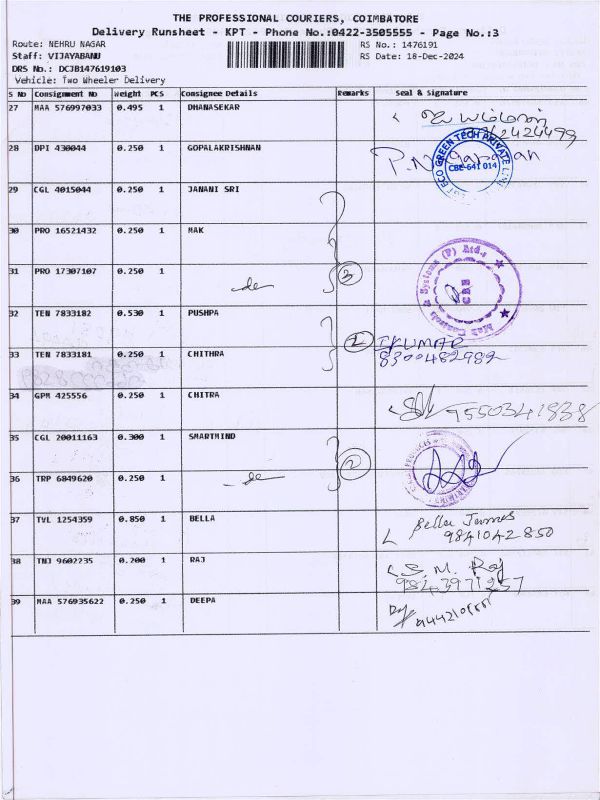 THE PROFESSIONAL COURIERS, COIMBATORE
Delivery Runsheet - KPT - Phone No.:0422-3505555 - Page No.:3
Route: NEHRU NAGAR RS No.: 1476191
Staff: VIJAYABANU RS Date: 18-Dec-2024
DRS No.: DCJB147619103
Vehicle: Two Wheeler Delivery
S No Consignment No Weight PCS Consignee Details Remarks Seal & Signature
27 MAA 576997033 0.495 1 DHANASEKAR
28 DPI 430044 0.250 1 GOPALAKRISHNAN
ECO GREEN TECH PRIVATE
CBE-641 014
29 CGL 4015044 0.250 1 JANANI SRI
30 PRO 16521432 0.250 1 MAK
31 PRO 17307107 0.250 1 3
Mak Controls & Systems (P) Ltd.,
CBE
32 TEN 7833182 0.530 1 PUSHPA
2 I KUMAR
33 TEN 7833181 0.250 1 CHITHRA 8300482982
34 GPM 425556 0.250 1 CHITRA 9550341838
35 CGL 20011163 0.300 1 SMARTMIND
2
36 TRP 6849620 0.250 1
37 TVL 1254359 0.850 1 BELLA Bella James
9841042850
38 TNJ 9602235 0.200 1 RAJ S. M. Raj
9843971257
39 MAA 576935622 0.250 1 DEEPA